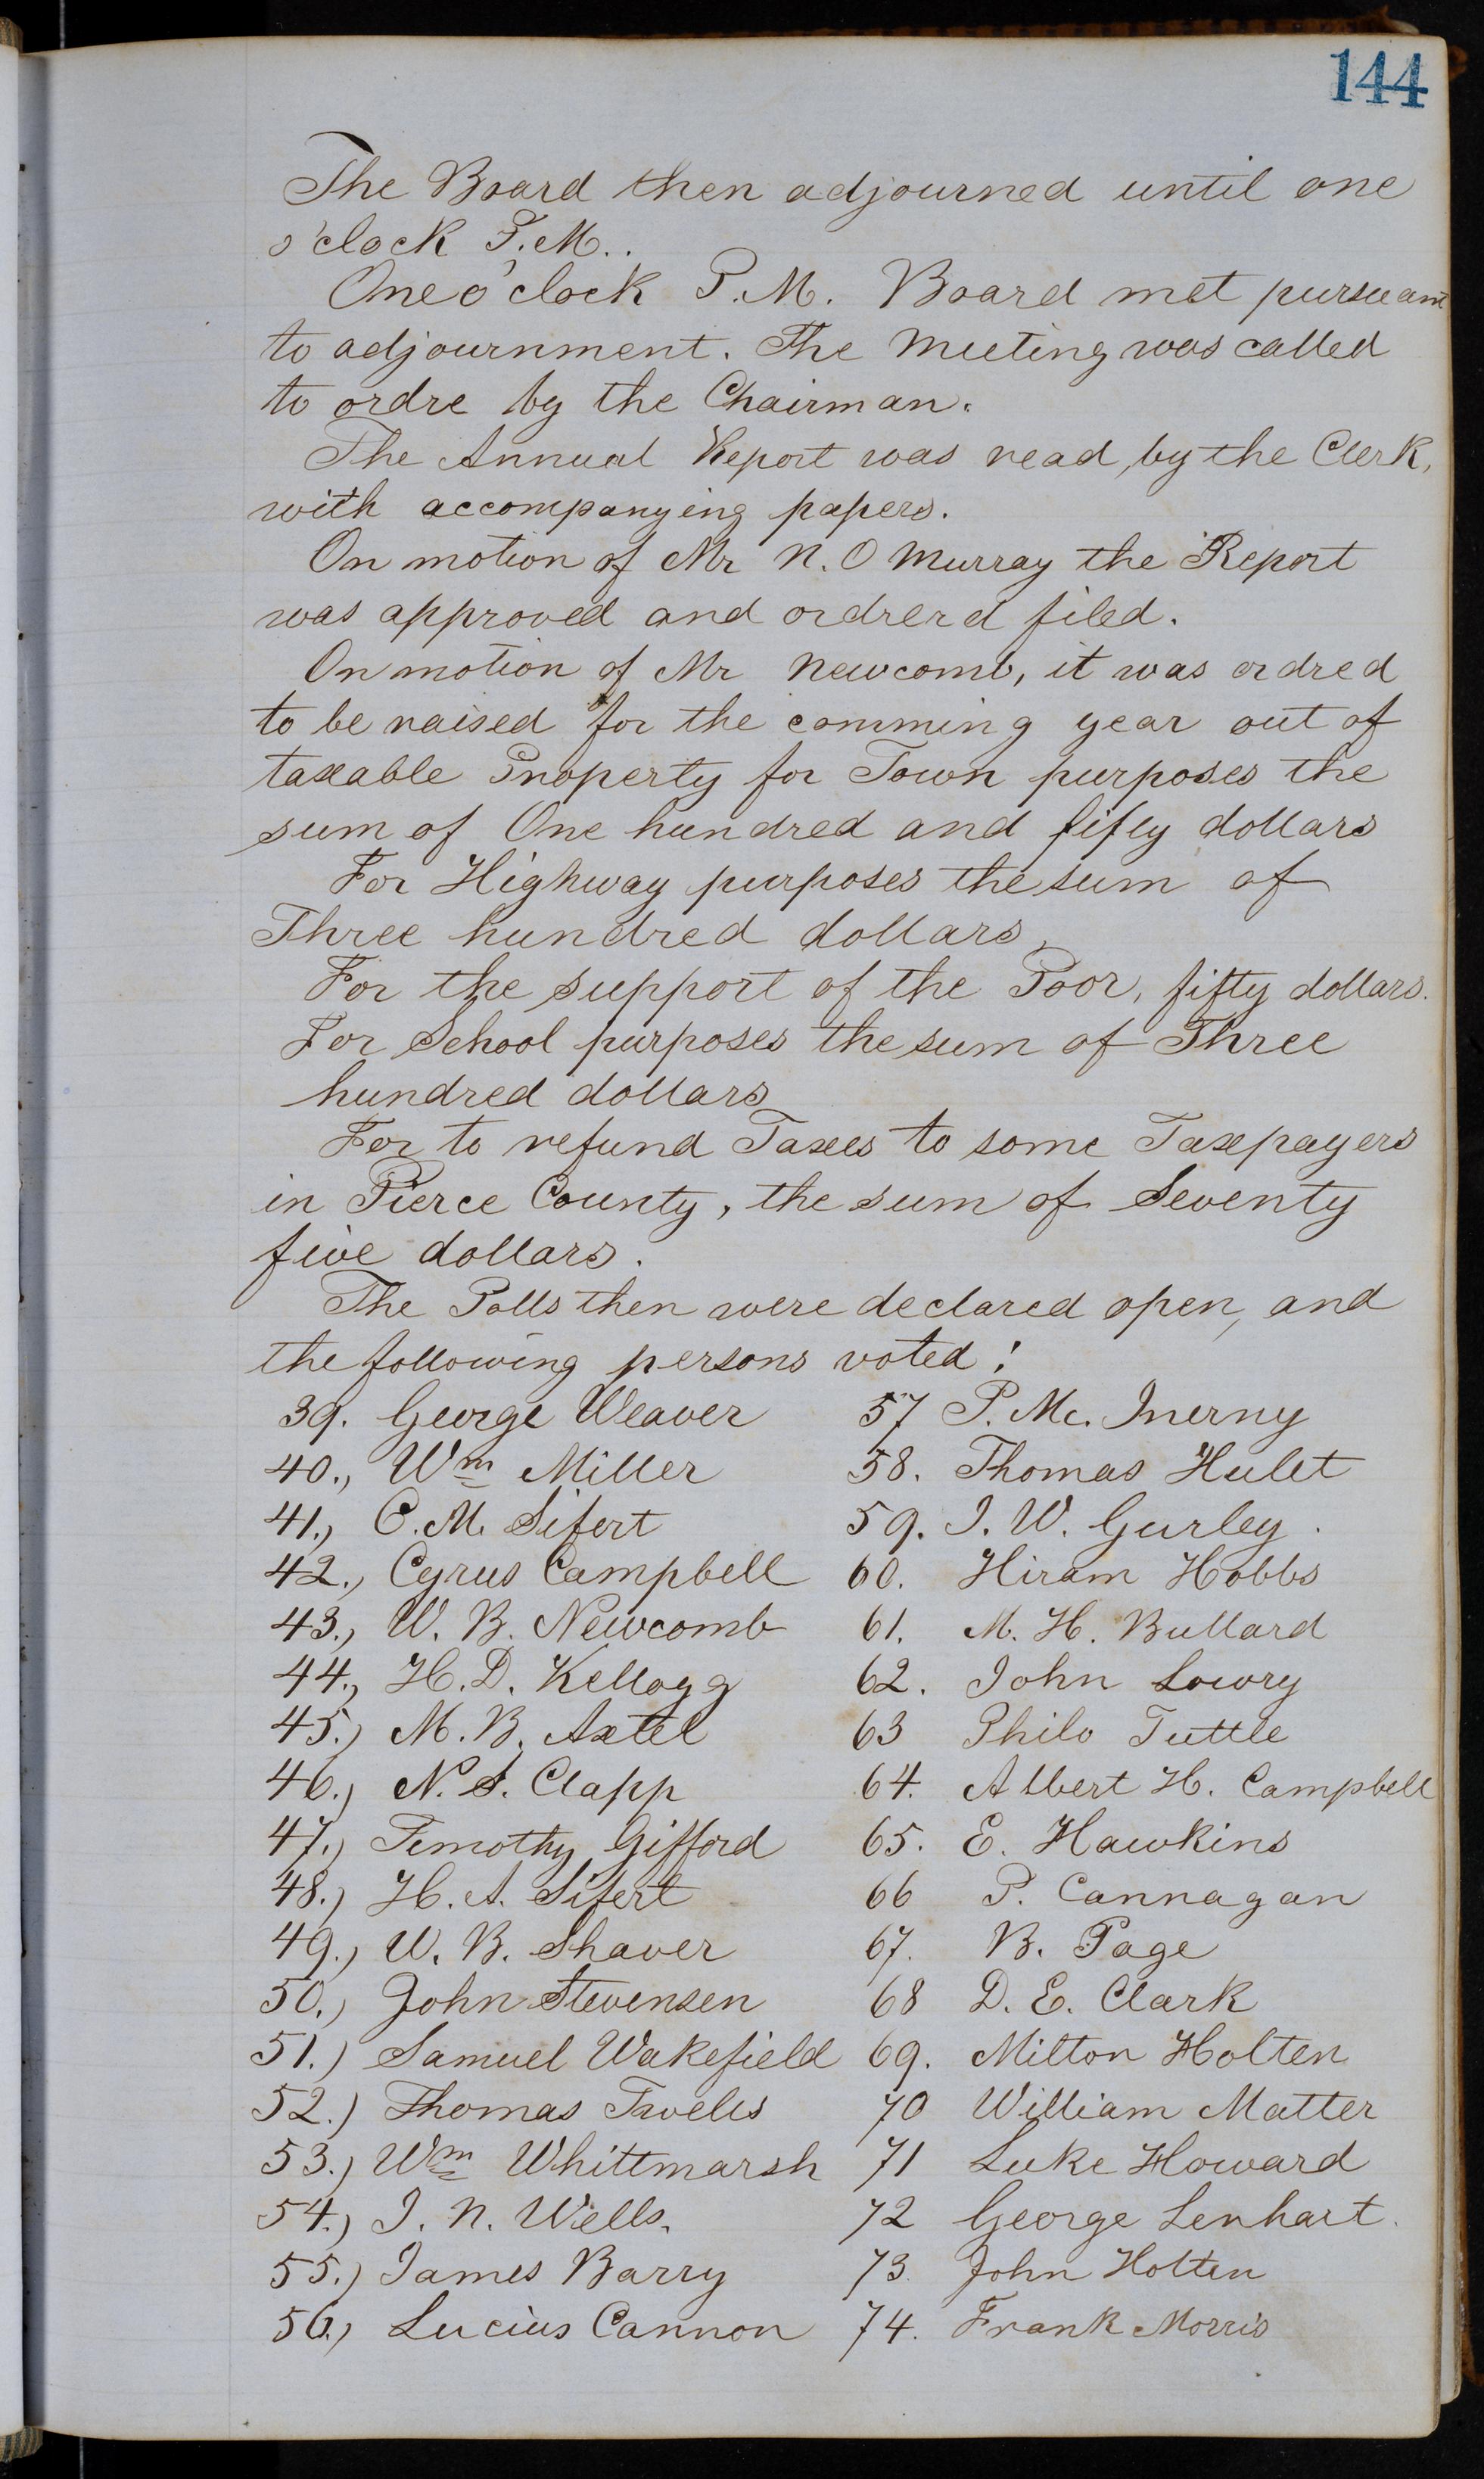 144
The Board then adjourned until one
o'clock P.M..
One o'clock P.M. Board met pursuant
to adjournment. The Meeting was called
to ordre by the Chairman.
The Annual Report was read, by the Clerk,
with accompanying papers.
On motion of Mr N. O Murray the Report
was approved and ordrerd filed.
On motion of Mr Newcomb, it was ordred
to be raised for the comming year out of
taxable Property for Town purposes the
sum of One hundred and fifty dollars
For Highway purposes the sum of
Three hundred dollars,
For the support of the Poor, fifty dollars.
For School purposes the sum of Three
hundred dollars
For to refund Taxes to some Taxpayers
in Pierce County, the sum of Seventy
five dollars.
The Polls then were declared open, and
the following persons voted:
39. George Weaver
40., Wm Miller
41., C. M. Sifert
42., Cyrus Campbell
43., W. B. Newcomb
44., H. D. Kellogg
45.) M. B. Axtel
46.) N. S. Clapp
47.) Temothy Gifford
48.) H. A. Sifert
49.) W. B. Shaver
50.) John Stevensen
51.) Samuel Wakefield
52.) Thomas Twelis
53.) Wm Whittmarsh
54.) J. N. Wells.
55.) James Barry
56.) Lucius Cannon
57 P. Mc. Inerny
58. Thomas Hulet
59. J. W. Gurley.
60. Hiram Hobbs
61. M. H. Bullard
62. John Lowry
63 Philo Tuttle
64. Albert H. Campbell
65. E. Hawkins
66 P. Cannagan
67. B. Page
68 D. E. Clark
69. Milton Holten
70 William Matter
71 Luke Howard
72 George Lenhart.
73. John Holten
74. Frank Morris